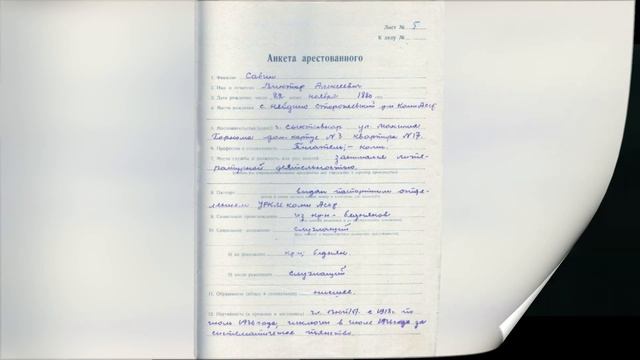 Лист № 5
К делу №
Анкета арестованного
1. Фамилия Савин
2. Имя и отчество Виктор Алексеевич
3. Дата рождения: число 22 месяц ноября 1880
4. Место рождения с. Небдино Сторожевский р-н Коми Асср
5. Местожительство (адрес) г. Сыктывкар ул. Максима
Горького дом. корпус № 3 квартира № 17.
6. Профессия и специальность Писатель, - коми.
7. Место службы и должность или род занятий занимался лите-
ратурной деятельностью.
8. Паспорт выдан паспортным отде-
лением УРКМ Коми Асср
9. Социальное происхождение из кр-н - бедняков
10. Социальное положение служащий
а) до революции кр-н бедняк.
б) после революции служащий
11. Образование низшее.
12. Партийность (в прошлом и настоящем) с 1918 г. по
июль 1936 года, исключен в июле 1936 года за
систематическое пьянство.